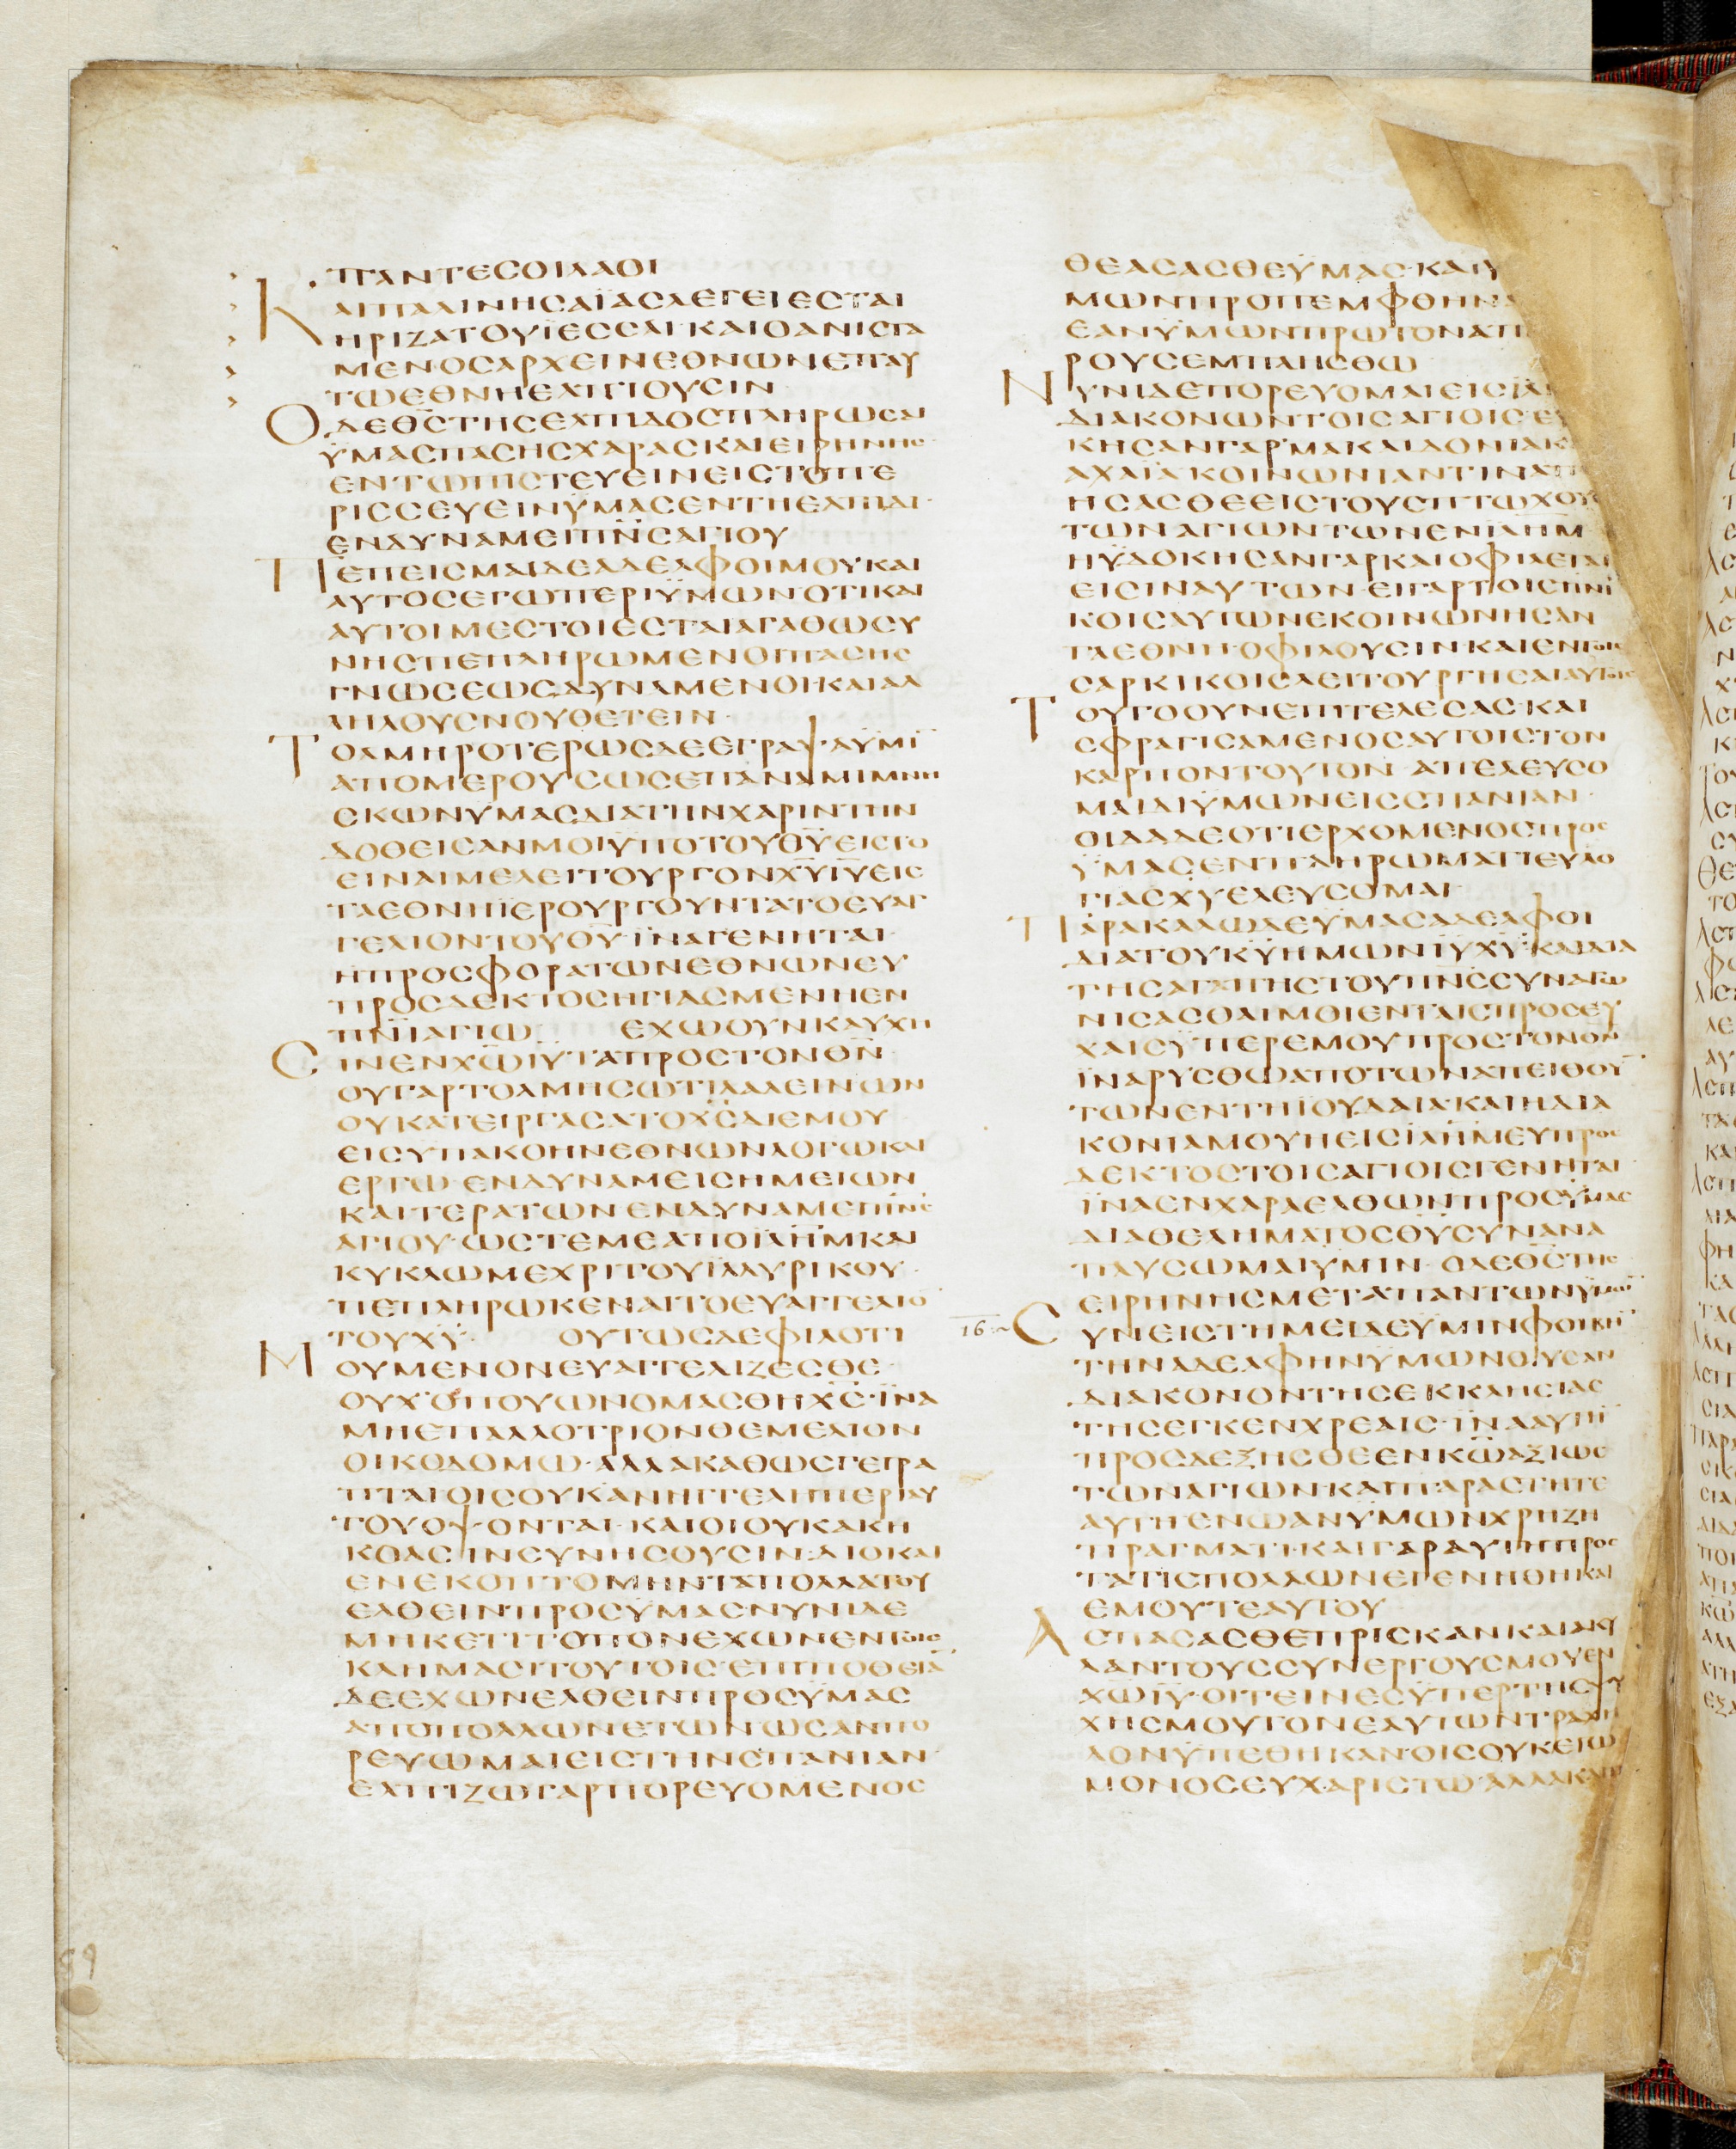 ΠΑΝΤΕCΟΙΛΑΟΙ
ΚΑΙΠΑΛΙΝΗCΑΪΑCΛΕΓΕΙΕCΤΑΙ
ΗΡΙΖΑΤΟΥΪΕCCΑΙ·ΚΑΙΟΑΝΙCΤΑ
ΜΕΝΟCΑΡΧΕΙΝΕΘΝΩΝΕΠΑΥ
ΤΩΕΘΝΗΕΛΠΙΟΥCΙΝ
ΟΔΕΘ̅C̅ΤΗCΕΛΠΙΔΟCΠΛΗΡΩCΑΙ
ΫΜΑCΠΑCΗCΧΑΡΑCΚΑΙΕΙΡΗΝΗC
ΕΝΤΩΠΙCΤΕΥΕΙΝΕΙCΤΟΠΕ
ΡΙCCΕΥΕΙΝΫΜΑCΕΝΤΗΕΛΠΙΔΙ·
ΕΝΔΥΝΑΜΕΙΠ̅Ν̅C̅ΑΓΙΟΥ
ΠΕΠΕΙCΜΑΙΔΕΑΔΕΛΦΟΙΜΟΥΚΑΙ
ΑΥΤΟCΕΓΩΠΕΡΙΫΜΩΝ·ΟΤΙΚΑΙ
ΑΥΤΟΙΜΕCΤΟΙΕCΤΑΙΑΓΑΘΩCΥ
ΝΗCΠΕΠΛΗΡΩΜΕΝΟΙΠΑCΗC
ΓΝΩCΕΩCΔΥΝΑΜΕΝΟΙ·ΚΑΙΑΛ
ΛΗΛΟΥCΝΟΥΘΕΤΕΙΝ·
ΤΟΛΜΗΡΟΤΕΡΩCΔΕΕΓΡΑΨΑΫΜΙ̅
ΑΠΟΜΕΡΟΥCΩCΕΠΑΝΑΜΙΜΝΗ
CΚΩΝΥΜΑCΔΙΑΤΗΝΧΑΡΙΝΤΗΝ
ΔΟΘΕΙCΑΝΜΟΙΫΠΟΤΟΥΘ̅Υ̅ΕΙCΤΟ
ΕΙΝΑΙΜΕΛΕΙΤΟΥΡΓΟΝΧ̅Υ̅Ι̅Υ̅ΕΙC
ΤΑΕΘΝΗΙΕΡΟΥΡΓΟΥΝΤΑΤΟΕΥΑΓ
ΓΕΛΙΟΝΤΟΥΘ̅Υ̅·ΪΝΑΓΕΝΗΤΑΙ
ΗΠΡΟCΦΟΡΑΤΩΝΕΘΝΩΝΕΥ
ΠΡΟCΔΕΚΤΟCΗΓΙΑCΜΕΝΗΕΝ
Π̅Ν̅Ι̅ΑΓΙΩ ΕΧΩΟΥΝΚΑΥΧΗ
CΙΝΕΝΧ̅Ω̅Ι̅Υ̅ΤΑΠΡΟCΤΟΝΘ̅Ν̅·
ΟΥΓΑΡΤΟΛΜΗCΩΤΙΛΑΛΕΙΝΩΝ
ΟΥΚΑΤΕΙΡΓΑCΑΤΟΧ̅C̅ΔΙΕΜΟΥ
ΕΙCΥΠΑΚΟΗΝΕΘΝΩΝΛΟΓΩΚΑΙ
ΕΡΓΩ·ΕΝΔΥΝΑΜΕΙCΗΜΕΙΩΝ
ΚΑΙΤΕΡΑΤΩΝΕΝΔΥΝΑΜΕΙΠ̅Ν̅C̅
ΑΓΙΟΥ·ΩCΤΕΜΕΑΠΟΪ̅Λ̅Η̅Μ̅ΚΑΙ
ΚΥΚΛΩΜΕΧΡΙΤΟΥΪΛΛΥΡΙΚΟΥ·
ΠΕΠΛΗΡΩΚΕΝΑΙΤΟΕΥΑΓΓΕΛΙΟ̅
ΤΟΥΧ̅Υ̅· ΟΥΤΩCΔΕΦΙΛΟΤΙ
ΜΟΥΜΕΝΟΝΕΥΑΓΓΕΛΙΖΕCΘΕ·
ΟΥΧΟΠΟΥΩΝΟΜΑCΘΗΧ̅C̅·ΪΝΑ
ΜΗΕΠΑΛΛΟΤΡΙΟΝΘΕΜΕΛΙΟΝ
ΟΙΚΟΔΟΜΩ·ΑΛΛΑΚΑΘΩCΓΕΓΡΑ
ΠΤΑΙΟΙCΟΥΚΑΝΗΓΓΕΛΗΠΕΡΙΑΥ
ΤΟΥΟΨΟΝΤΑΙ·ΚΑΙΟΙΟΥΚΑΚΗ
ΚΟΑCΙΝCΥΝΗCΟΥCΙΝ·ΔΙΟΚΑΙ
ΕΝΕΚΟΠΤΟΜΗΝΤΑΠΟΛΛΑΤΟΥ
ΕΛΘΕΙΝΠΡΟCΥΜΑC·ΝΥΝΙΔΕ
ΜΗΚΕΤΙΤΟΠΟΝΕΧΩΝΕΝΤΟΙC
ΚΛΗΜΑCΙΤΟΥΤΟΙC·ΕΠΙΠΟΘΕΙΑ̅
ΔΕΕΧΩΝΕΛΘΕΙΝΠΡΟCΥΜΑC
ΑΠΟΠΟΛΛΩΝΕΤΩΝΩCΑΝΠΟ
ΡΕΥΩΜΑΙΕΙCΤΗΝCΠΑΝΙΑΝ·
ΕΛΠΙΖΩΓΑΡΠΟΡΕΥΟΜΕΝΟC
ΘΕΑCΑCΘΕΫΜΑC·ΚΑΙΥ
ΜΩΝΠΡΟΠΕΜΦΘΗΝΑ
ΕΑΝΫΜΩΝΠΡΩΤΟΝΑΠ
ΡΟΥCΕΜΠΛΗCΘΩ
ΝΥΝΙΔΕΠΟΡΕΥΟΜΑΙΕΙC
ΔΙΑΚΟΝΩΝΤΟΙCΑΓΙΟΙC·Ε
ΚΗCΑΝΓΑΡΜΑΚΑΙΔΟΝΙΑΚ
ΑΧΑΪΑΚΟΙΝΩΝΙΑΝΤΙΝΑΠ
ΗCΑCΘΕΕΙCΤΟΥCΠΤΩΧΟΥ
ΤΩΝΑΓΙΩΝΤΩΝΕΝΪ̅Λ̅Η̅Μ̅
ΗΫΔΟΚΗCΑΝΓΑΡΚΑΙΟΦΙΛΕΤΑΙ
ΕΙCΙΝΑΥΤΩΝ·ΕΙΓΑΡΤΟΙCΠ̅Ν̅Ι̅
ΚΟΙCΑΥΤΩΝΕΚΟΙΝΩΝΗCΑΝ
ΤΑΕΘΝΗ·ΟΦΙΛΟΥCΙΝΚΑΙΕΝΤΟΙC
CΑΡΚΙΚΟΙCΛΕΙΤΟΥΡΓΗCΑΙΑΥΤΟΙC
ΤΟΥΤΟΟΥΝΕΠΙΤΕΛΕCΑC·ΚΑΙ
CΦΡΑΓΙCΑΜΕΝΟCΑΥΤΟΙCΤΟΝ
ΚΑΡΠΟΝΤΟΥΤΟΝ·ΑΠΕΛΕΥCΟ
ΜΑΙΔΙΫΜΩΝΕΙCCΠΑΝΙΑΝ·
ΟΙΔΑΔΕΟΤΙΕΡΧΟΜΕΝΟCΠΡΟC
ΫΜΑCΕΝΠΛΗΡΩΜΑΤΙΕΥΛΟ
ΓΙΑCΧ̅Υ̅ΕΛΕΥCΟΜΑΙ·
ΠΑΡΑΚΑΛΩΔΕΫΜΑCΑΔΕΛΦΟΙ
ΔΙΑΤΟΥΚ̅Υ̅ΗΜΩΝΙ̅Υ̅Χ̅Υ̅·ΚΑΙΔΙΑ
ΤΗCΑΓΑΠΗCΤΟΥΠ̅Ν̅C̅CΥΝΑΓΩ
ΝΙCΑCΘΑΙΜΟΙΕΝΤΑΙCΠΡΟCΕΥ
ΧΑΙCΫΠΕΡΕΜΟΥΠΡΟCΤΟΝΘ̅Ν̅
ΪΝΑΡΥCΘΩΑΠΟΤΩΝΑΠΕΙΘΟΥ̅
ΤΩΝΕΝΤΗΪΟΥΔΑΙΑ·ΚΑΙΗΔΙΑ
ΚΟΝΙΑΜΟΥΗΕΙCΪ̅Λ̅Η̅Μ̅ΕΥΠΡΟC
ΔΕΚΤΟCΤΟΙCΑΓΙΟΙCΓΕΝΗΤΑΙ
ΪΝΑΕΝΧΑΡΑΕΛΘΩΝΠΡΟCΫΜΑC
ΔΙΑΘΕΛΗΜΑΤΟCΘ̅Υ̅CΥΝΑΝΑ
ΠΑΥCΩΜΑΙΥΜΙΝ·ΟΔΕΘ̅C̅ΤΗC
ΕΙΡΗΝΗCΜΕΤΑΠΑΝΤΩΝΥΜΩ̅
16 CΥΝΕΙCΤΗΜΕΙΔΕΥΜΙΝΦΟΙΒΗ̅
ΤΗΝΑΔΕΛΦΗΝΫΜΩΝΟΥCΑΝ
ΔΙΑΚΟΝΟΝΤΗCΕΚΚΛΗCΙΑC
ΤΗCΕΓΚΕΝΧΡΕΑΙC·ΪΝΑΑΥΤΗ̅
ΠΡΟCΔΕΞΗCΘΕΕΝΚ̅Ω̅ΑΞΙΩC
ΤΩΝΑΓΙΩΝ·ΚΑΙΠΑΡΑCΤΗΤΕ
ΑΥΤΗΕΝΩΑΝΫΜΩΝΧΡΗΖΗ
ΠΡΑΓΜΑΤΙ·ΚΑΙΓΑΡΑΥΤΗΠΡΟC
ΤΑΤΙCΠΟΛΛΩΝΕΓΕΝΗΘΗΚΑΙ
ΕΜΟΥΤΕΑΥΤΟΥ
ΑCΠΑCΑCΘΕΠΡΙCΚΑΝΚΑΙΑΚΥ
ΛΑΝΤΟΥCCΥΝΕΡΓΟΥCΜΟΥΕΝ
Χ̅Ω̅Ι̅Υ̅·ΟΙΤΕΙΝΕCΫΠΕΡΤΗCΨΥ
ΧΗCΜΟΥΤΟΝΕΑΥΤΩΝΤΡΑΧΗ
ΛΟΝΫΠΕΘΗΚΑΝ·ΟΙCΟΥΚΕΓΩ
ΜΟΝΟCΕΥΧΑΡΙCΤΩ·ΑΛΛΑΚΑΙΠ